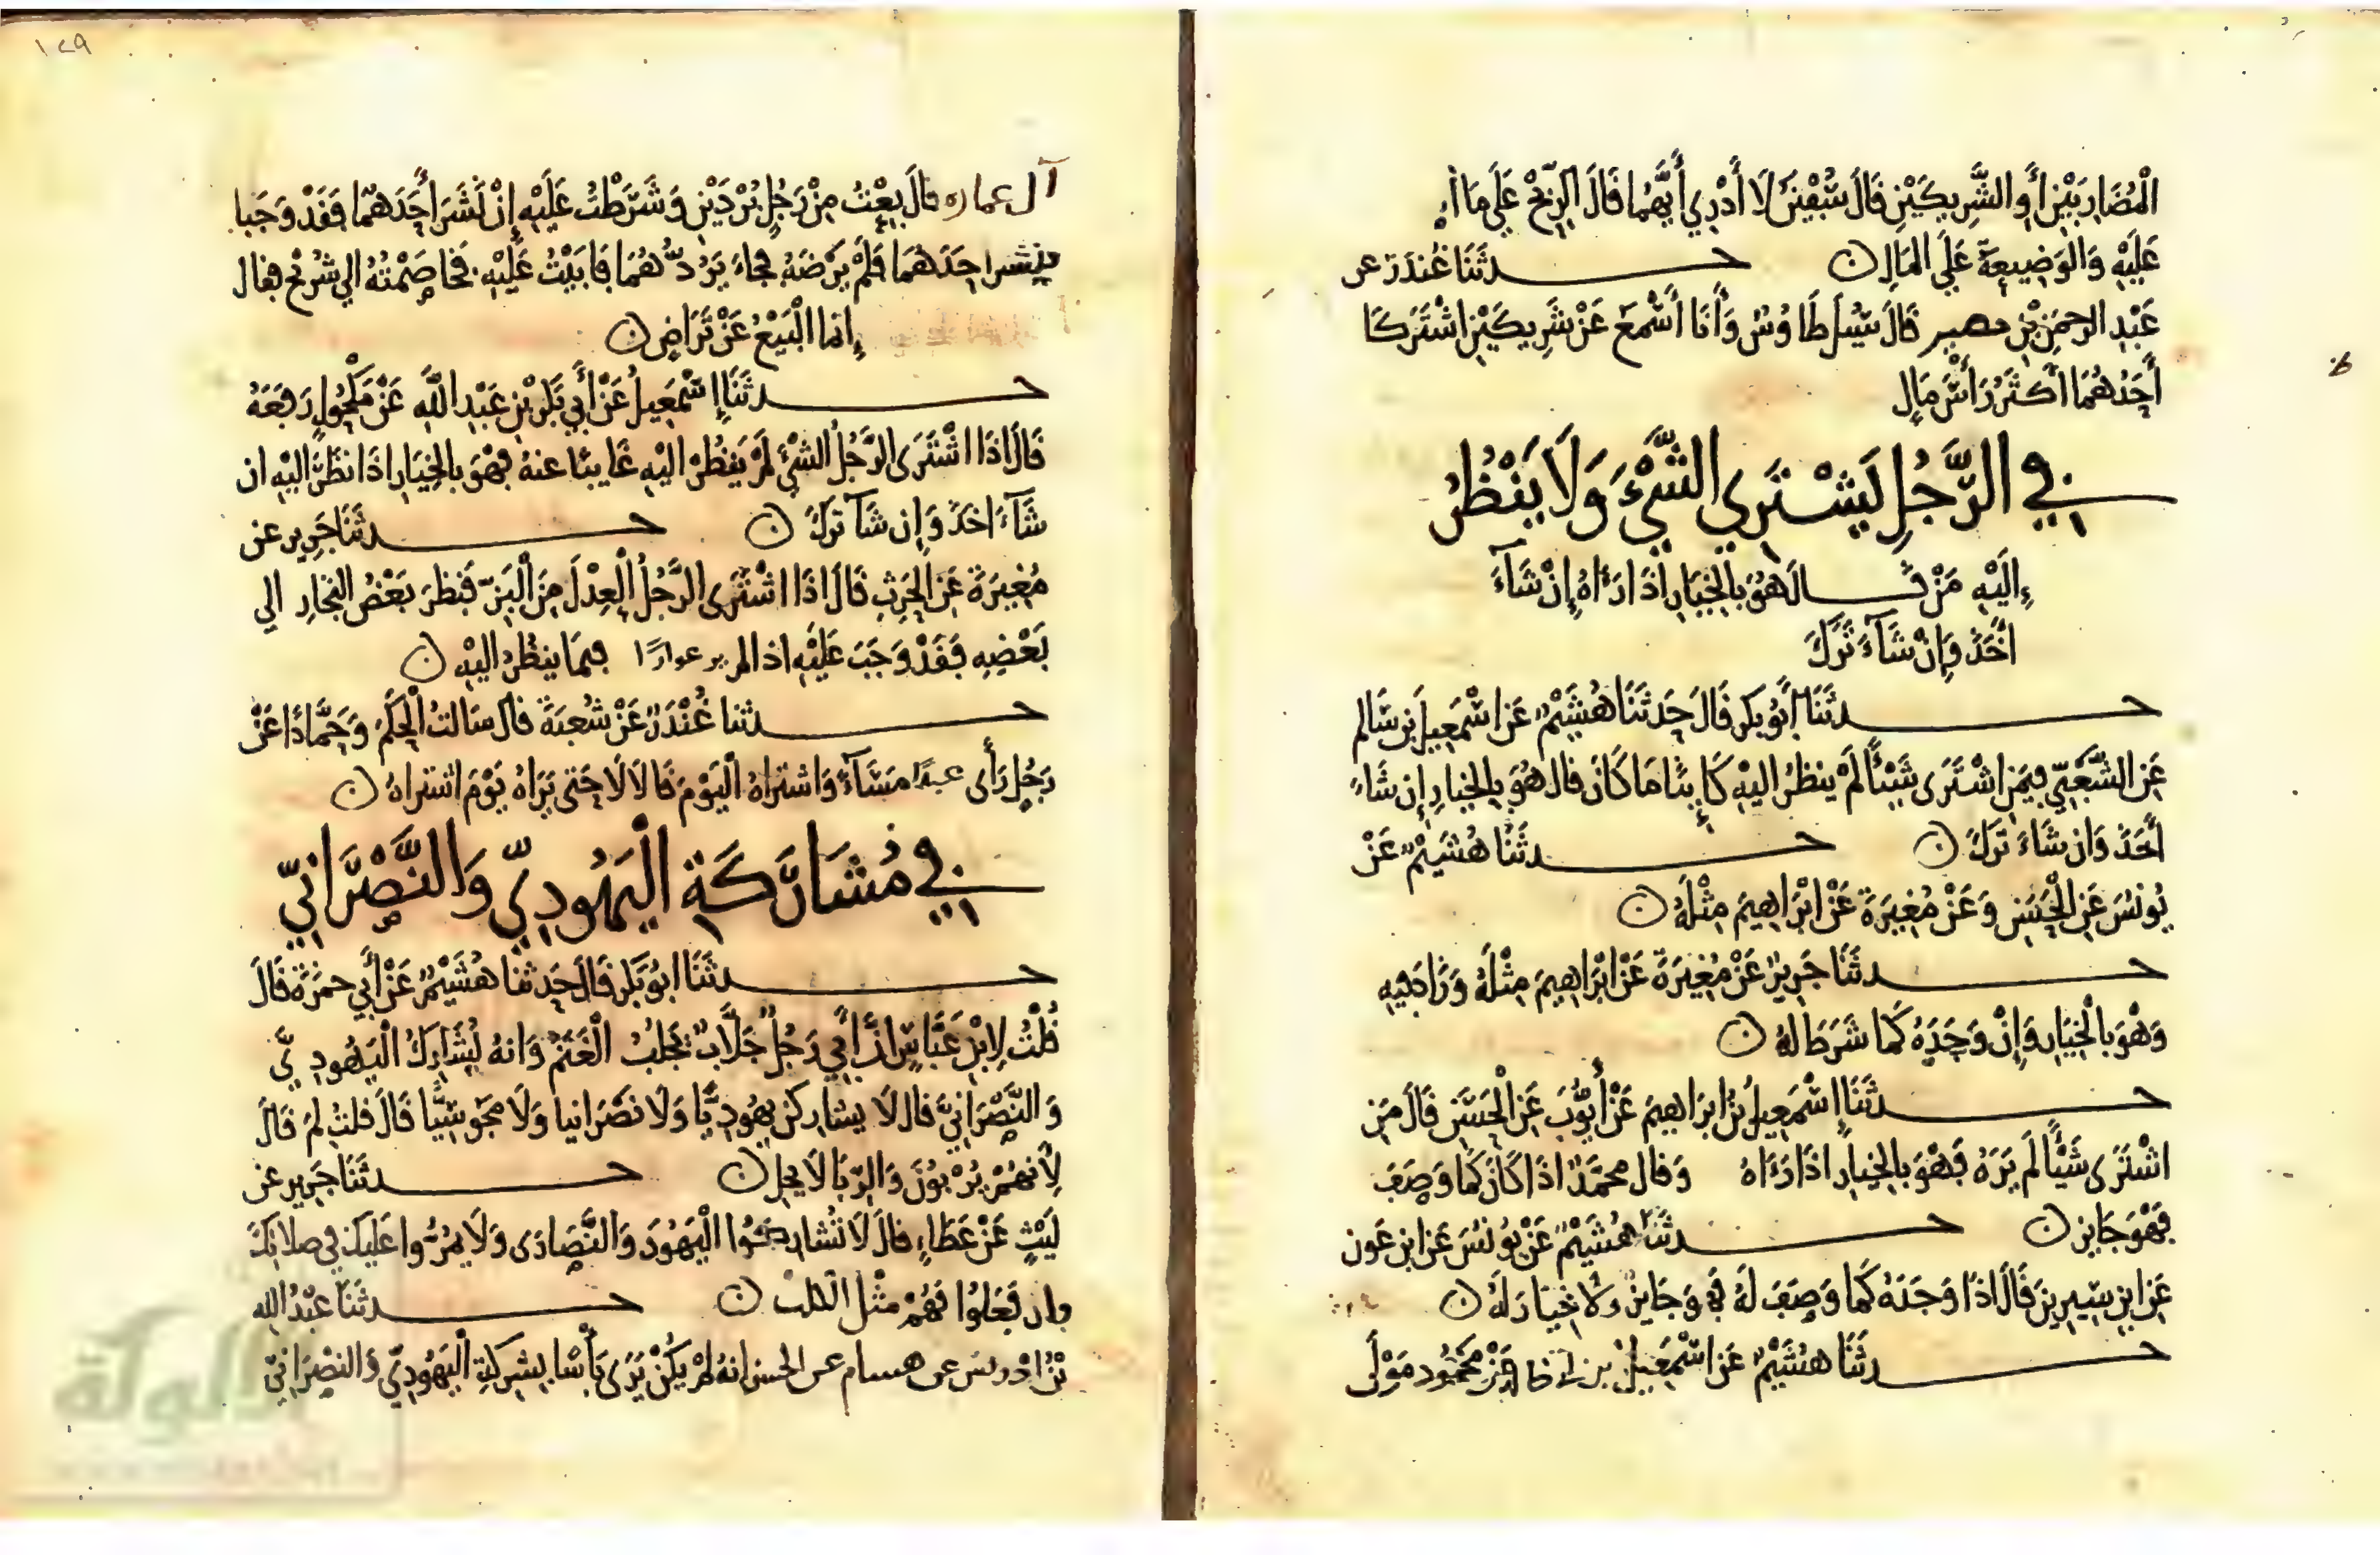 الْمُضَارِبَيْنِ أَوِ الشَّرِيكَيْنِ قَالَ سُفْيَنُ لَا أَدْرِي أَيُّهُمَا قَالَ الرِّبْحُ عَلَى مَا
عَلَيْهِ وَالْوَضِيعَةُ عَلَى الْمَالِ ن حــــدثَنَا غُنْدَر عن
عَبْدِ الرحمَنِ بْنِ قَالَ سُئِلَ طَاوُسٌ وَأَنَا أَسْمَعُ عَنْ شَرِيكَيْنِ اشْتَرَكَا
أَحَدُهُمَا أَكْثَرُ رَأْسَ مَالٍ
فِي الرَّجُلِ يَشْتَرِي الشَّيْءَ وَلَا يَنْظُرُ
إِلَيْهِ مَنْ قَــــالَ هُوَ بِالْخِيَارِ إِذَا رَءَاهُ إِنْ شَآءَ
أَخَذَ وَإِنْ شَآءَ تَرَكَ
حــــدثَنَا أَبُو بَكر قَالَ حَدثَنَا هُشَيْمٌ عَن اسْمَعِيلَ بن سَالم
عَنِ الشَّعْبِيِّ فِيمَنِ اشْتَرَى شَيْئًا لَمْ ينظُرْ اليْهِ كَائِنًا مَا كَانَ قال هُوَ بِالْخيارِ إِن شَاءَ
أَخَذَ وَان شَاءَ تَرَكَ ن حــــدثَنَا هُشَيْمٌ عَنْ
يُونُسَ عَنِ الْحَسَنِ وَعَنْ مُغِيرَةَ عَنْ ابْرَاهِيمَ مِثْلَهُ ن
حــــدثَنَا جَرِيرٌ عَنْ مُغِيرَةَ عَنْ ابْرَاهِيمَ مِثْلَهُ وَزَادَ فِيهِ
وَهْوَ بِالْخِيَارِ وَإِنْ وَجَدَهُ كَمَا شَرَطَ لَهُ ن
حــــدثَنَا إِسْمَعِيلُ بْنُ ابرَاهِيمَ عَنْ أَيُّوبَ عَنِ الْحَسَنِ قَالَ مَنِ
اشْتَرَى شَيْئًا لَم يَرَهُ فَهْوَ بِالْخِيَارِ اذَا رَءَاهُ وَقال محمَّدٌ اذَا كَانَ كَمَا وَصَفَ
فَهْوَ جَايِز ن حــــدثَنَا هُشَيْمٌ عَنْ يُونُسَ عَن ابن عَون
عَن ابنِ سِيرِينَ قَالَ اذَا وَجَدَهُ كَمَا وَصَفَ لَهُ فَهْوَ جَايِزٌ وَلَا خِيَارَ لَهُ ن
حــــدثَنَا هُشَيْمٌ عَنِ اسْمَعِيلَ بن عَنْ مَحْمُود مَوْلَى
١٢٩
آل عماره قَالَ بِعْتُ مِنْ رَجُلٍ بُرْدَيْنِ وَشَرَطْتُ عَلَيْهِ إِنْ نَشَرَ أَحَدَهُمَا فَقَدْ وَجَبَا
فنشر احَدَهُمَا فَلَمْ يَرْضَهُ فجَاءَ يَرُدُّهُمَا فَابَيْتُ عَلَيْهِ فَخَاصَمْتُهُ الي شُرَيْحٍ فقال
إِنَّمَا الْبَيْعُ عَنْ تَرَاضٍ ن
حــــدثَنَا إِسْمَعِيلُ عَنْ أَبِي بَكْرِ بْنِ عَبْدِ اللَّهِ عَنْ مَكْحُولٍ رَفَعَهُ
قَالَ اذَا اشْتَرَى الرَّجُلُ الشَّيْءَ لَمْ يَنظُرْ اليْهِ غَايِبًا عنهُ فهْوَ بِالْخِيَارِ اذَا نظَرَ اليْهِ ان
شَآءَ اخَذَ وَإِن شَآ تَرَكَ ن حــــدثَنَا جَرِير عن
مُغِيرَةَ عَنِ الْحَرِثِ قَالَ اذَا اشْتَرَى الرَّجُلُ الْعِدْلَ مِنَ الْبَزِّ فَنظَرَ بَعْضُ التجارِ الي
بَعْضِهِ فَقَدْ وَجَبَ عَلَيْهِ اذا لم ير عوارًا فِيمَا ينظُرُ اليْهِ ن
حــــدثنا غُنْدَرٌ عَنْ شُعبَةَ قال سَالتُ الْحَكَمَ وَحَمَّادًا عَنْ
رَجُلٍ رَأَى عبدًا مَسَاءً وَاشتراهُ الْيَوْمَ قَالَا لَا حَتى يَرَاهُ يَوْمَ اشتراهُ ن
فِي مُشَارَكَةِ الْيَهُودِيِّ وَالنَّصْرَانِيِّ
حــــدثَنَا ابُو بَكْر قَالَ حَدثنا هُشَيْمٌ عَنْ أَبِي حمزَة قَالَ
قُلْتُ لِابْنِ عَبَّاسٍ انَّ أَبِي رَجُلٌ جَلَّابٌ يَجْلِبُ الْغَنَمَ وَانهُ لَيُشَارِكُ الْيَهُودِيَّ
وَالنَّصْرَانِيَّ قال لَا يشاركن يَهُودِيًّا وَلَا نصْرَانيا وَلَا مَجُوسِيًّا قَالَ قلتُ لِمَ قَالَ
لِأَنَّهُمْ يُرْبُونَ وَالرِّبَا لَا يحل ن حــــدثَنَا جَرِير عن
لَيْثٍ عَنْ عَطَاءٍ قَالَ لَا تُشَارِكُوا الْيَهُودَ وَالنَّصَارَى وَلَا يَمُرُّوا عَلَيك في صلاتِكَ
وان فَعَلُوا فَهُمْ مثْل الكلب ن حــــدثنَا عَبْدُ الله
بْنُ ادْريس عن هسام عن الحسن انهُ لَمْ يَكُنْ يَرَى بَأْسًا بِشِركَةِ الْيَهُودِيِّ وَالنصْرَانِيِّ
الألوكة